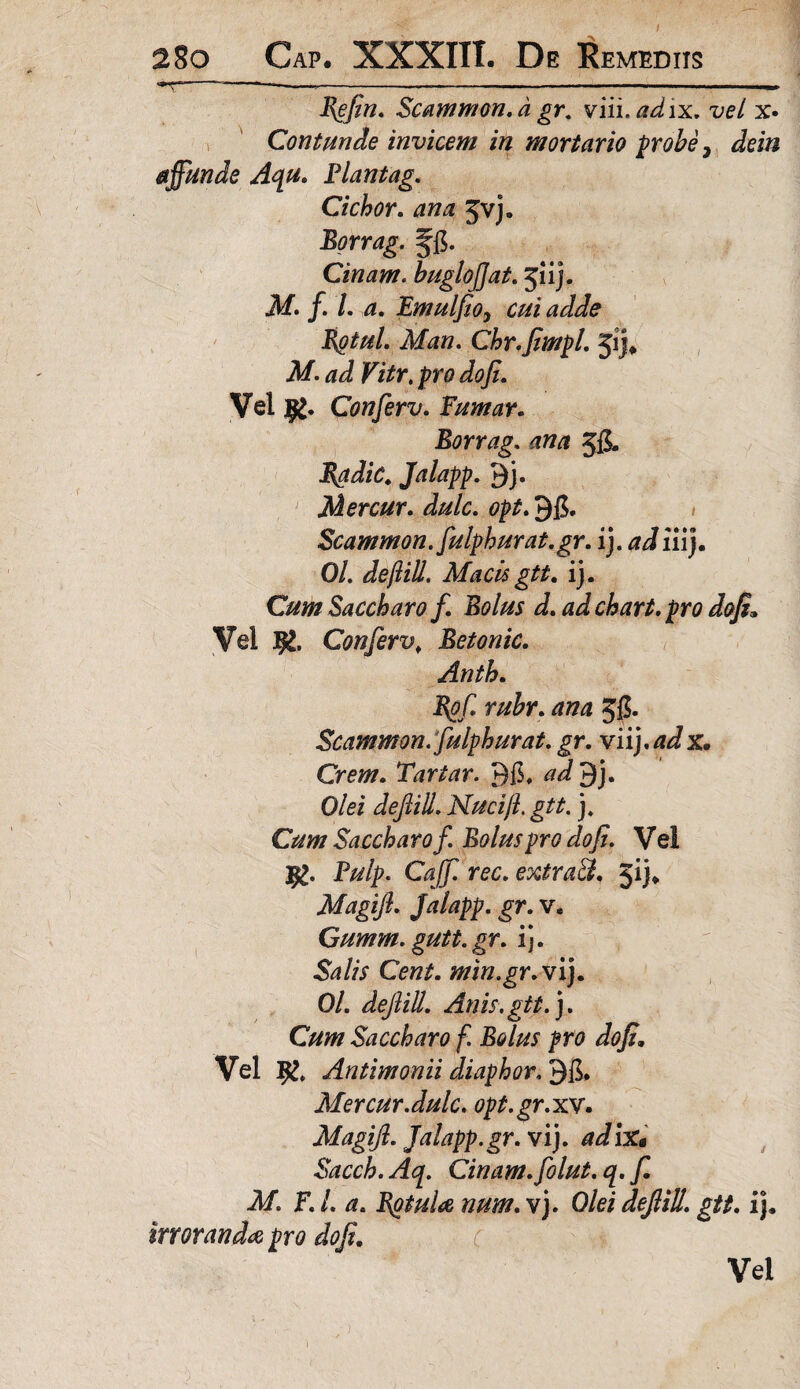 280 Cap. XXXIII. De Remediis
Reſin. Scammon. à gr. viii. ad ix. vel x.
Contunde invicem in mortario probè, dein
affunde Aqu. Plantag.
Cichor. ana ʒvj.
Borrag. ℥ß.
Cinam. bugloſſat. ʒiij.
M. f. l. a. Emulſio, cui adde
Rotul. Man. Chr. ſimpl. ʒij.
M. ad Vitr. pro doſi.
Vel ℞. Conſerv. Fumar.
Borrag. ana ʒß.
Radic. Jalapp. ℈j.
Mercur. dulc. opt. ℈ß.
Scammon. ſulphurat. gr. ij. ad iiij.
Ol. deſtill. Macis gtt. ij.
Cum Saccharo f. Bolus d. ad chart. pro doſi.
Vel ℞. Conſerv. Betonic.
Anth.
Roſ. rubr. ana ʒß.
Scammon. ſulphurat. gr. viij. ad x.
Crem. Tartar. ℈ß. ad ℈j.
Olei deſtill. Nuciſt. gtt. j.
Cum Saccharo f. Bolus pro doſi. Vel
℞. Pulp. Caſſ. rec. extract. ʒij.
Magiſt. Jalapp. gr. v.
Gumm. gutt. gr. ij.
Salis Cent. min. gr. vij.
Ol. deſtill. Anis. gtt. j.
Cum Saccharo f. Bolus pro doſi.
Vel ℞. Antimonii diaphor. ℈ß.
Mercur. dulc. opt. gr. xv.
Magiſt. Jalapp. gr. vij. ad ix.
Sacch. Aq. Cinam. ſolut. q. ſ.
M. F. l. a. Rotulæ num. vj. Olei deſtill. gtt. ij.
irrorandæ pro doſi.
Vel